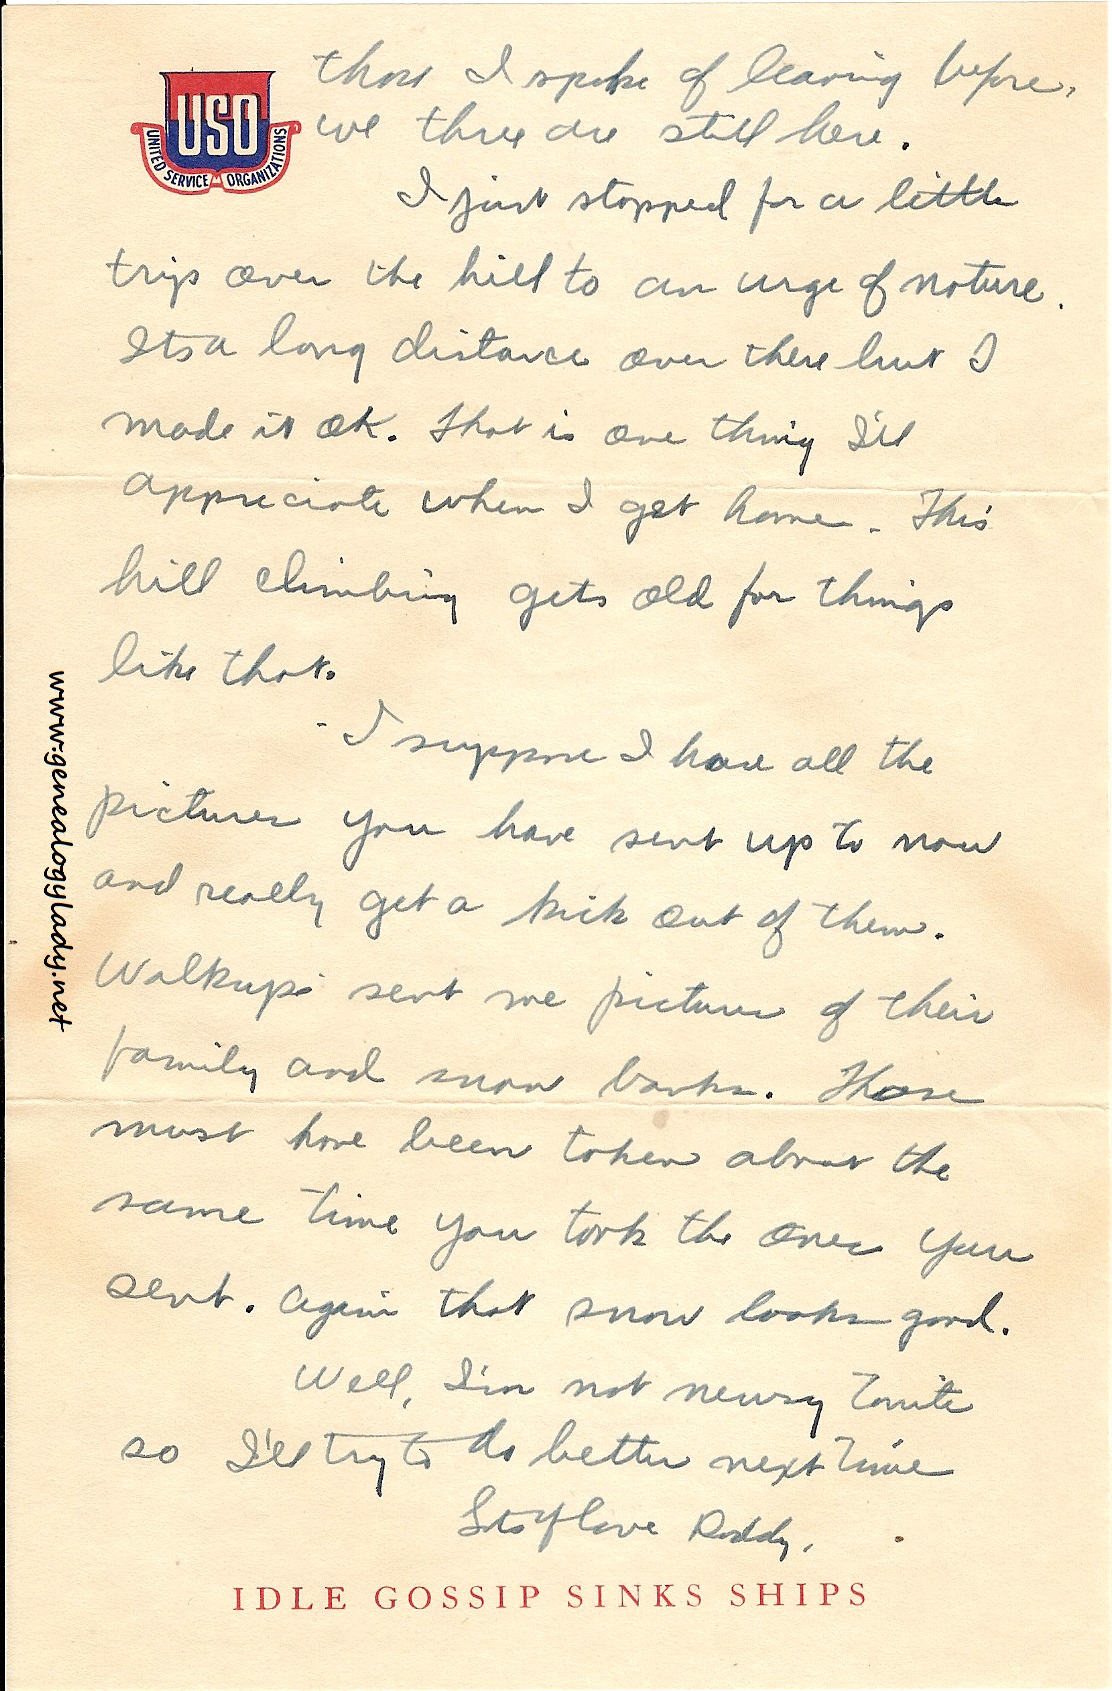 USO
UNITED SERVICE ORGANIZATIONS
those I spoke of leaving before,
we three are still here.
I just stopped for a little
trip over the hill to an urge of nature.
Its a long distance over there but I
made it OK. That is one thing I'll
appreciate when I get home. This
hill climbing gets old for things
like that.
I suppose I have all the
pictures you have sent up to now
and really get a kick out of them.
Walkups sent me pictures of their
family and snow banks. Those
must have been taken about the
same time you took the ones you
sent. Again that snow looks good.
Well, I'm not newsy tonite
so I'll try to do better next time
Lts of love Daddy.
IDLE GOSSIP SINKS SHIPS
www.genealogylady.net